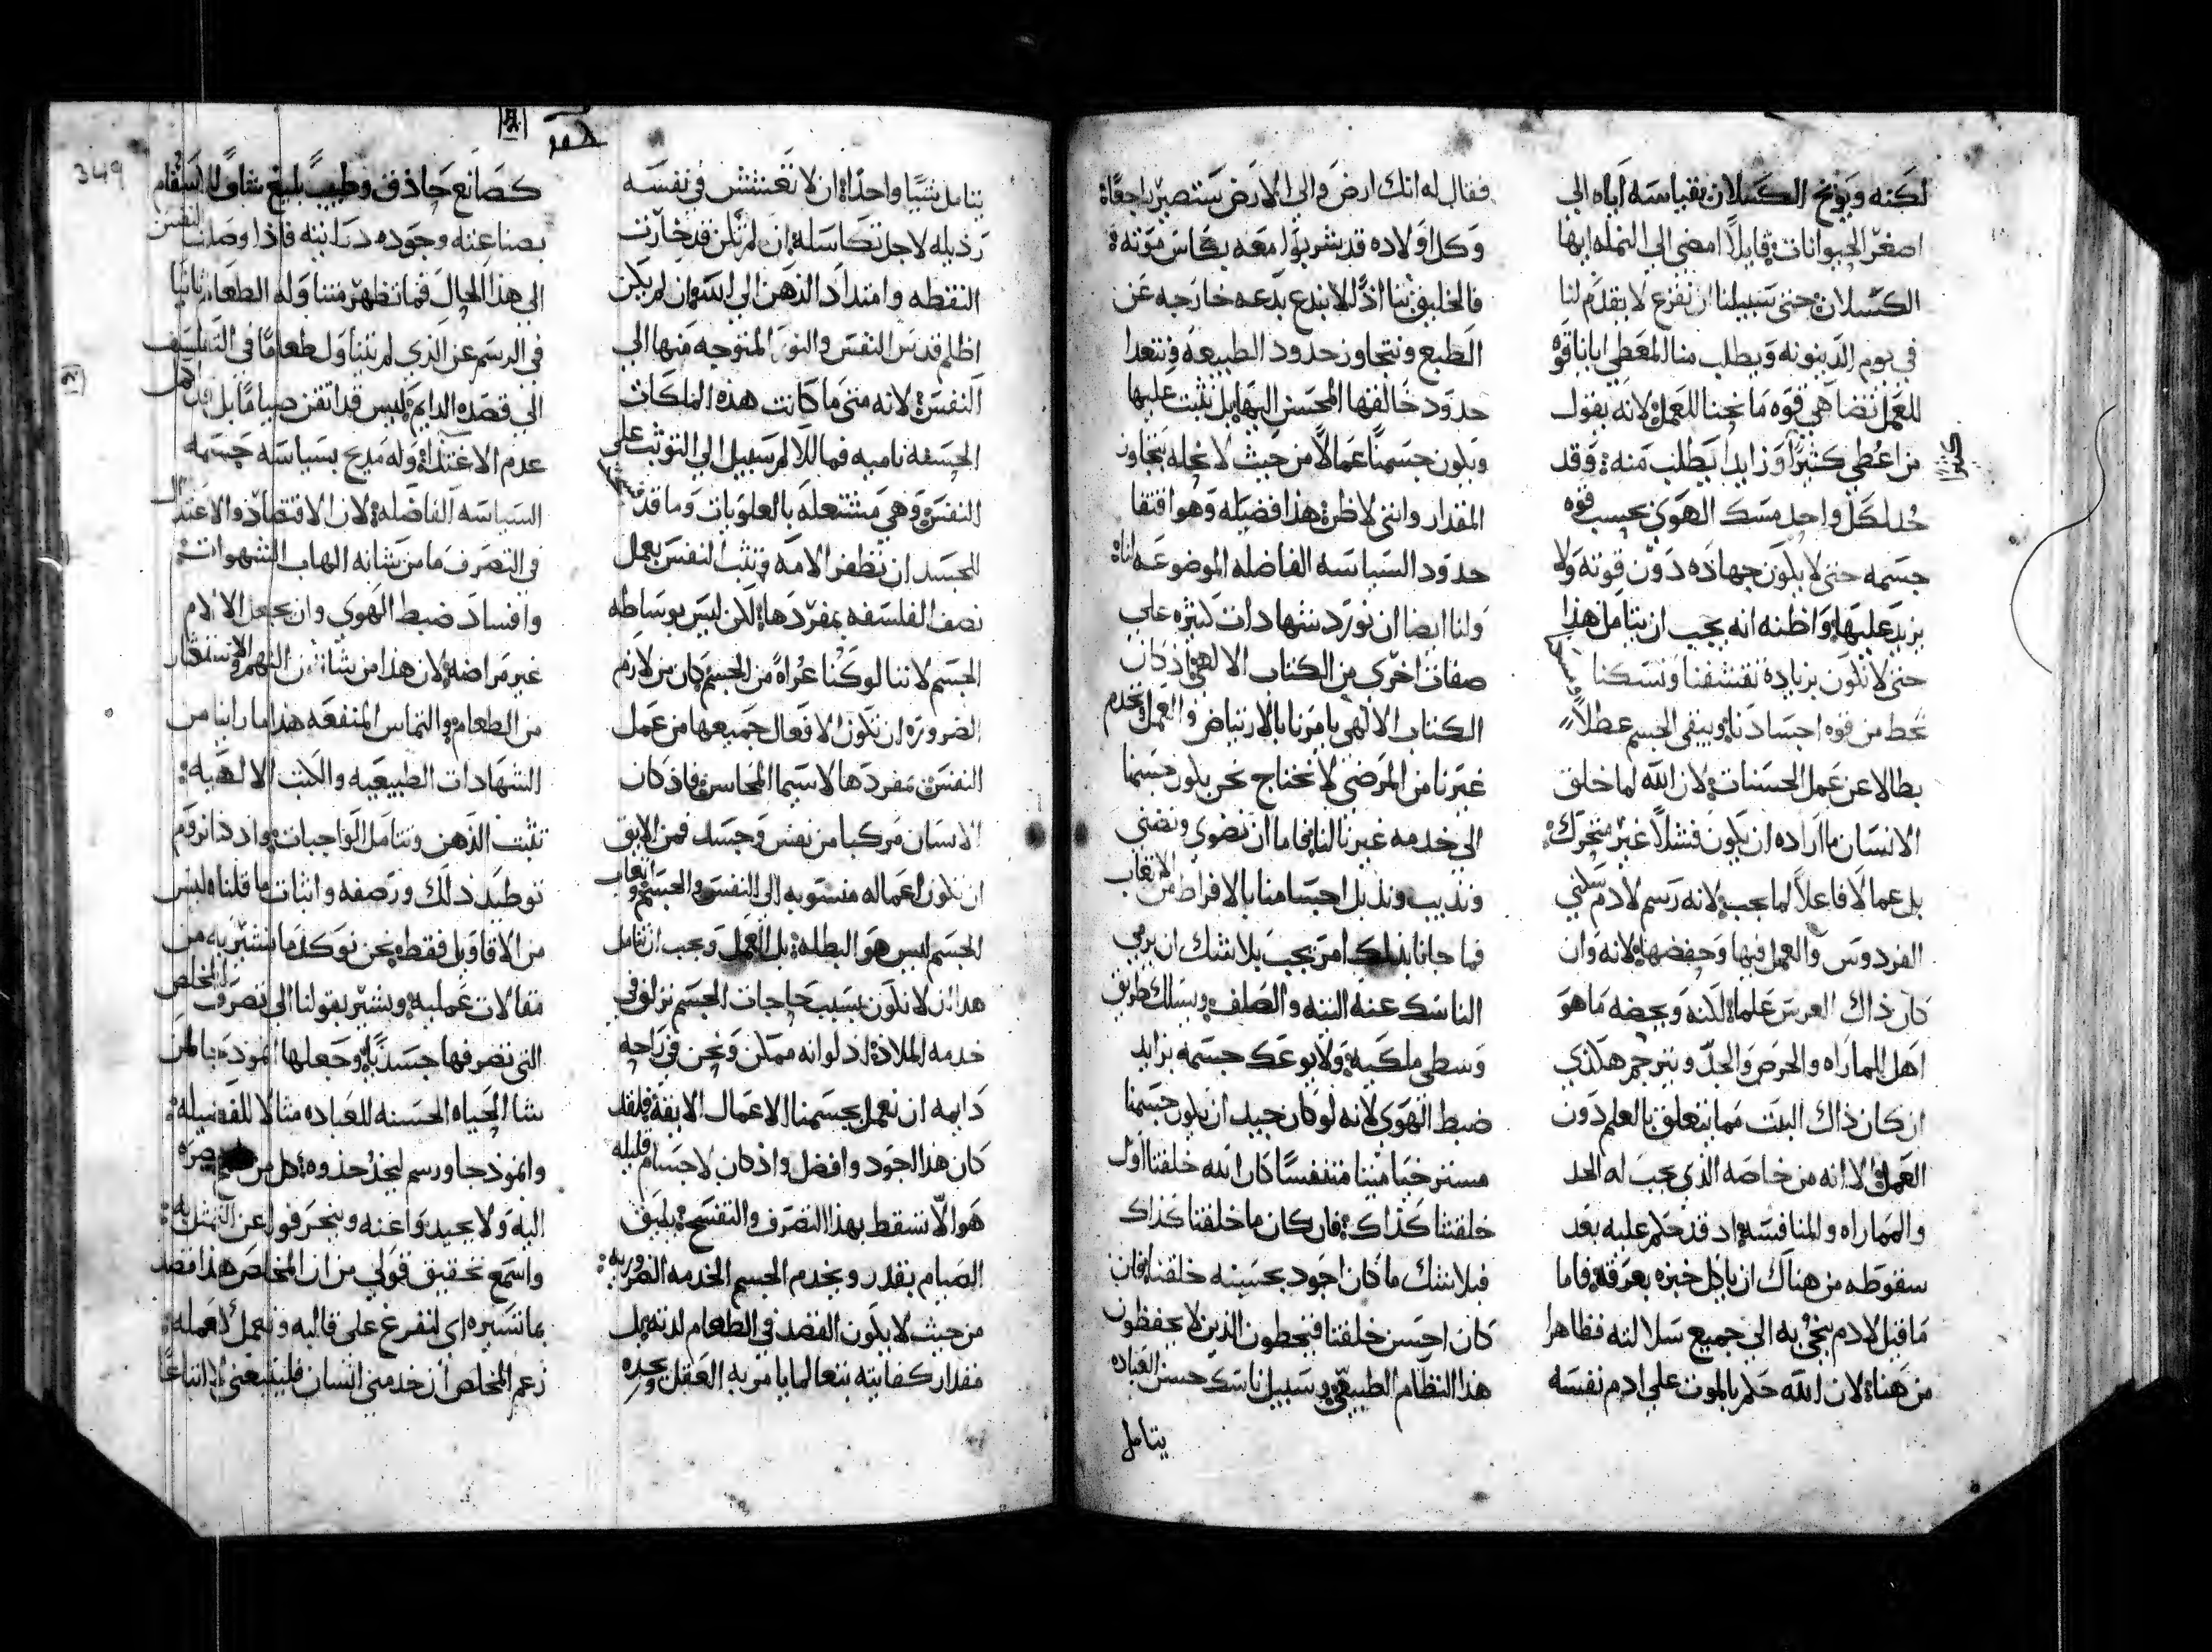 لكنه ويوبخ الكسلان بقياسه اياه الي
اصغر الحيوانات قايلاً امضي الي النمله ايها
الكسلان حتي سبيلنا ان نفزع لا يقدم لنا
في يوم الدينونه ويطلب منا المعطي ايانا قوه
للعمل تضاهي قوه ما نحبنا للعمل لانه يقول
من اعطي كثيراً وزايداً يطلب منه وقد
حد لكل واحد مسك الهوي بحسب قوه
جسمه حتي لا يكون جهاده دون قوته ولا
يزيد عليها واظنه انه يجب ان يتامل هذا
حتي لا نكون بزياده تقشفنا ونسكنا
نحط من قوه اجسادنا ويبقي الجسم عطلاً
بطالا عن عمل الحسنات لان الله لما خلق
الانسان ما اراده ان يكون فشلاً غير متحرك
بل عمالا فاعلاً لما يجب لانه رسم لادم سكني
الفردوس والعمل فيها وحفضها لانه وان
كان ذاك العرس علما لكنه ويحضه ما هو
اهل للماراه والحرص والجد ويترجم هكذي
ان كان ذاك البيت مما يتعلق بالعلم دون
العمل والا انه من خاصه الذي يجب له الحد
والمماراه والمنافسه اد قد حكم عليه بعد
سقوطه من هناك ان ياكل خبزه بعرقه فاما
ما قيل لادم يجي به الي جميع سلالته فظاهرا
من هنا لان الله حكم بالموت علي ادم نفسه
فقال له انك ارض والي الارض ستصير راجعاً
وكل اولاده قد شربوا معه بكاس موته
فالخليق بنا اذاً الا نبدع بدعه خارجه عن
الطبع ونتجاوز حدود الطبيعه ونتعدا
حدود خالقها المحسن اليها بل نثبت عليها
ويكون جسمنا عمالاً من حيث لا نجله يتجاوز
المقدار وانني لاظن هذا فضيله وهو اقتفا
حدود السياسه الفاضله الموضوعه انا
ولنا ايضا ان نورد شهادات كثيره علي
صفات اخري من الكتاب الالهي اذ كان
الكتاب الالهي يامرنا بالارتياض والعمل ونخدم
غيرنا من المرضي لا نحتاج نحن بكون جسمنا
الي خدمه غيرنا لنا فاما ان نضوي ونضني
ونذيب ونذبل اجسامنا بالافراط من الاتعاب
فما جانا بذلك امر يجب بلا شك ان يرمي
الناسك عنه التيه والصلف ويسلك طريق
وسطي ملكيه ولا يوعك جسمه بزايد
ضبط الهوي لانه لو كان جيد ان يكون جسمنا
مسترخيا ميتا متنفسًا كان الله خلقنا اول
خلقتنا كذاك فان كان ما خلقنا كذاك
فبلا شك ما كان اجود بحسبنه خلقنا فان
كان احسن خلقتنا فيخطون الذين لا يحفظون
هذا النظام الطبيعي وسبيل ناسك حسن العباده
يتامل
يتامل شيًا واحدًا ان لا تعشش في نفسه
رذيله لاجل تكاسله ان لم تكن قد خارت
النقطه وامتداد الذهن الي الله وان لم يكن
اظلم قدس النفس والنور المتوجه منها الي
النفس لانه متي ما كانت هذه الملكات
الحسنه ناميه فما للالم سبيل الي التوثب علي
النفس وهي مشتعله بالعلويات وما قد
للجسد ان تظفر الامه وتثب النفس بعمل
نصف الفلسفه بمفردها لكن ليس بوساطه
الجسم لاننا لو كنا عراهً من الجسم كان من لازم
الضروره ان تكون الافعال جميعها من عمل
النفس بمفردها لا سيما المحاسن فاذ كان
الانسان مركبا من نفس وجسد فمن الايق
ان تكون اعماله منسوبه الي النفس والجسم واتعاب
الجسم ليس هو البطله بل العمل ويجب ان نتامل
هذا ان لا نكون بسبب حاجات الجسم نزلق في
خدمه الملاذ اذ لو انه ممكن ونحن في راحه
دايمه ان نعمل بجسمنا الاعمال الايقه فلقد
كان هذا اجود وافضل واذ كان لاجسام قليله
هوالا تسقط بهذا التصرف والتفسح يليق
الصيام بقدر ويخدم الجسم الخدمه الضروريه
من حيث لا يكون القصد في الطعام لذته بل
مقدار كفايته بتعالما يامر به العقل ويحده
كصانع حاذق وطبيب بليغ يشاول اسقام
بصناعته وجوده ديانته فاذا وصلت النفس
الي هذا الحال فما تظهر متناوله الطعام ثانيا
في الرسم عن الذي لم يتناول طعامًا في التفلسف
الي قصده الدايم ليس قد اتقن صيامًا بل قد اكمل
عدم الاغتذا وله مديح بسياسه جسمه
السياسه الفاضله لان الاقتصاد والاعتدال
في التصرف ما من شانه الهاب الشهوات
وافساد ضبط الهوي وان يجعل الالام
غير مراضه لان هذا من شان النهم والاستكثار
من الطعام والتماس المنفعه هذا ما راينا من
الشهادات الطبيعيه والكتب الالهيه
تثبت الذهن ونتامل الواجبات واذ ذا نروم
توطيد ذلك ورصفه واثبات ما قلناه ليس
من الاقاويل فقط نحن نوكد ما نشير به من
مقالات عمليه ونشير بقولنا الي تصرف المخلص
التي تصرفها جسديًا وجعلها انموذجا لمن
يشا الحياه الحسنه للعباده مثالا للفضيله
وانموذجا ورسم ليحذ حذوه كل من
اليه ولا يحيدوا عنه وينحرفوا عن التمثل به
واسمع تحقيق قولي من ان المخلص هذا قصد
بما نشيره اي لنفرغ علي قالبه ونعمل كعمله
زعم المخلص ان خدمني انسان فليتبعني لا اتباعًا
349